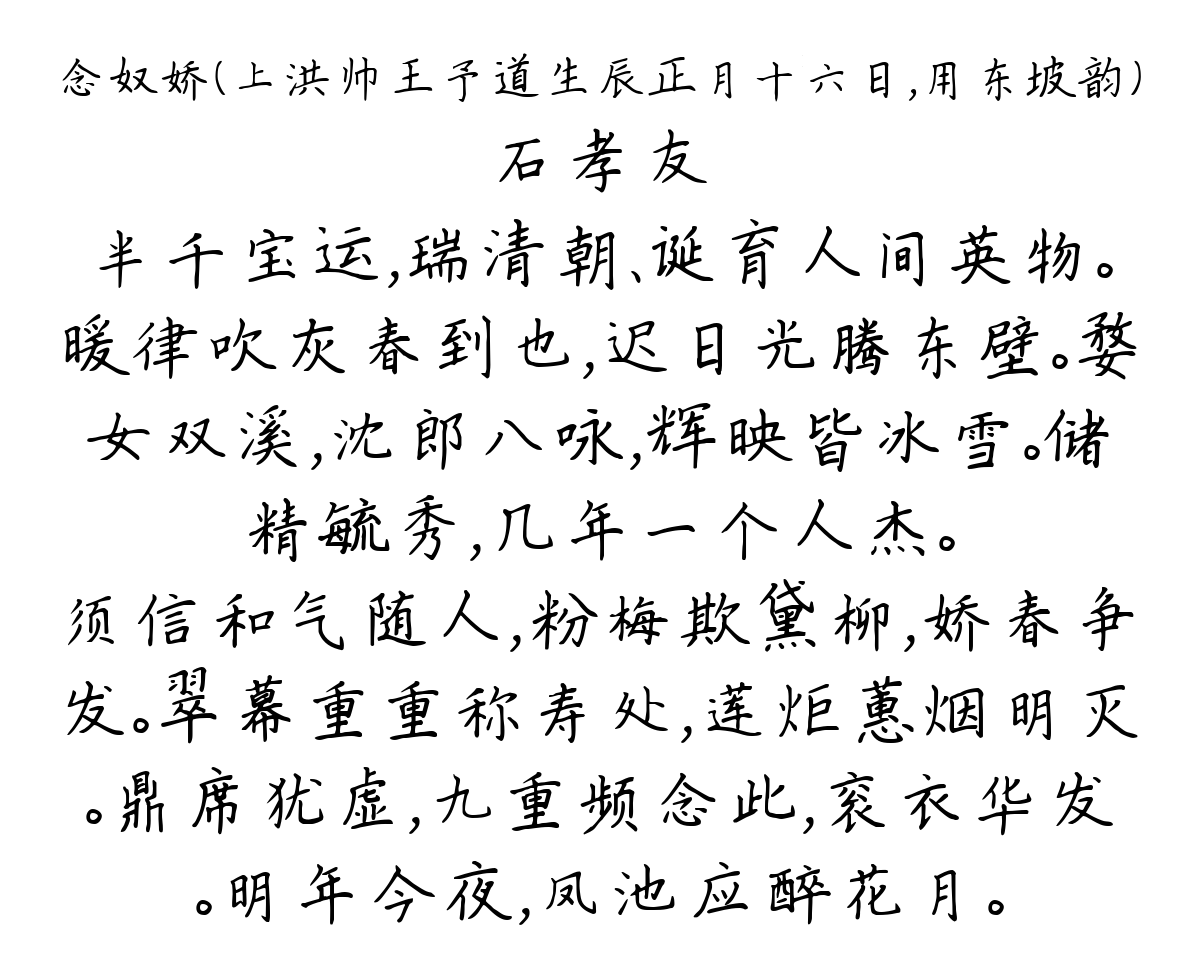 念奴娇(上洪帅王予道生辰正月十六日,用东坡韵)
石孝友
半千宝运,瑞清朝、诞育人间英物。
暖律吹灰春到也,迟日光腾东壁。婺
女双溪,沈郎八咏,辉映皆冰雪。储
精毓秀,几年一个人杰。
须信和气随人,粉梅欺黛柳,娇春争
发。翠幕重重称寿处,莲炬蕙烟明灭
。鼎席犹虚,九重频念此,衮衣华发
。明年今夜,凤池应醉花月。